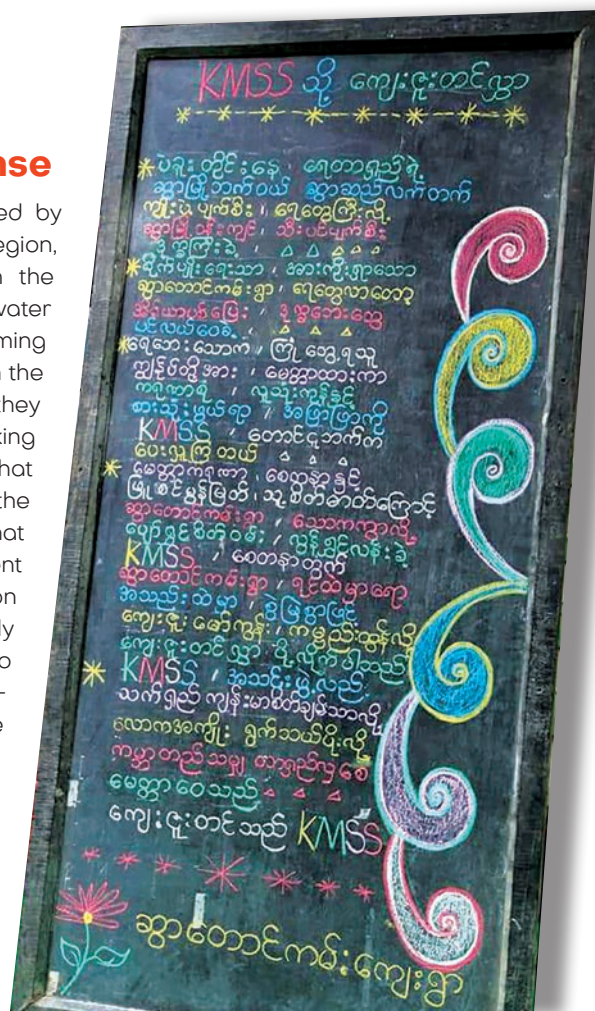 nse
ed by
egion,
the
water
ming
the
they
king
hat
the
hat
nt
on
ly
o
-
e
KMSS သို့ ကျေးဇူးတင်လွှာ
ပဲခူးတိုင်းနေ၊ ရေတာရှည်ရဲ့
ဆွာမြို့ဘက်ဝယ် ဆွာဆည်လက်တက်
ကျိုးပဲ့ပျက်စီး၊ ရေတွေကြီးလို့
ဆွာမြို့ဒန်းကျင်၊ သီးပင်ပျက်စီး
ဒုက္ခကြီးခဲ့
စိုက်ပျိုးရေးသာ၊ အားကိုးရှာသော
ဆွာတောင်ကမ်းရွာ၊ ရေတွေလာတော့
ဒုက္ခဘေးတွေ
ပင်လယ်ဝေခဲ့
ရေဘေးသောက၊ ကြုံတွေ့ရသူ
ကျွန်ုပ်တို့အား၊ မေတ္တာထားကာ
ကရုဏာရံ၊ လူသုံးကုန်နှင့်
စားသုံးဖွယ်ရာ၊ အဖြာဖြာကို
KMSS၊ တောင်ငူဘက်က
ပေးလှူကြတယ်
မေတ္တာကရုဏာ၊ စေတနာနှင့်
ဖြူစင်မွန်မြတ်၊ သူ့စိတ်ဓာတ်ကြောင့်
ဆွာတောင်ကမ်းရွာ၊ သောကကွာလို့
ပျော်ရွှင်စိတ်ဝမ်း၊ လွန်ရွှင်လန်းခဲ့
KMSS၊ စေတနာတွက်
ဆွာတောင်ကမ်းရွာ၊ ရင်ထဲမှာရော
အသည်းထဲမှာ၊ စွဲမြဲစွာဖြင့်
ကျေးဇူးမော်ကွန်း၊ ကမ္ပည်းထွန်လို့
ကျေးဇူးတင်လွှာ ပို့လိုက်ပါသည်
KMSS၊ အသင်းဖွဲ့လည်း
သက်ရှည်ကျန်းမာစိတ်ချမ်းသာလို့
လောကအကျိုး ရွက်သယ်ပိုးလို့
ကမ္ဘာတည်သမျှ တာရှည်လှစေ
မေတ္တာဝေသည်
ကျေးဇူးတင်သည် KMSS
ဆွာတောင်ကမ်းကျေးရွာ